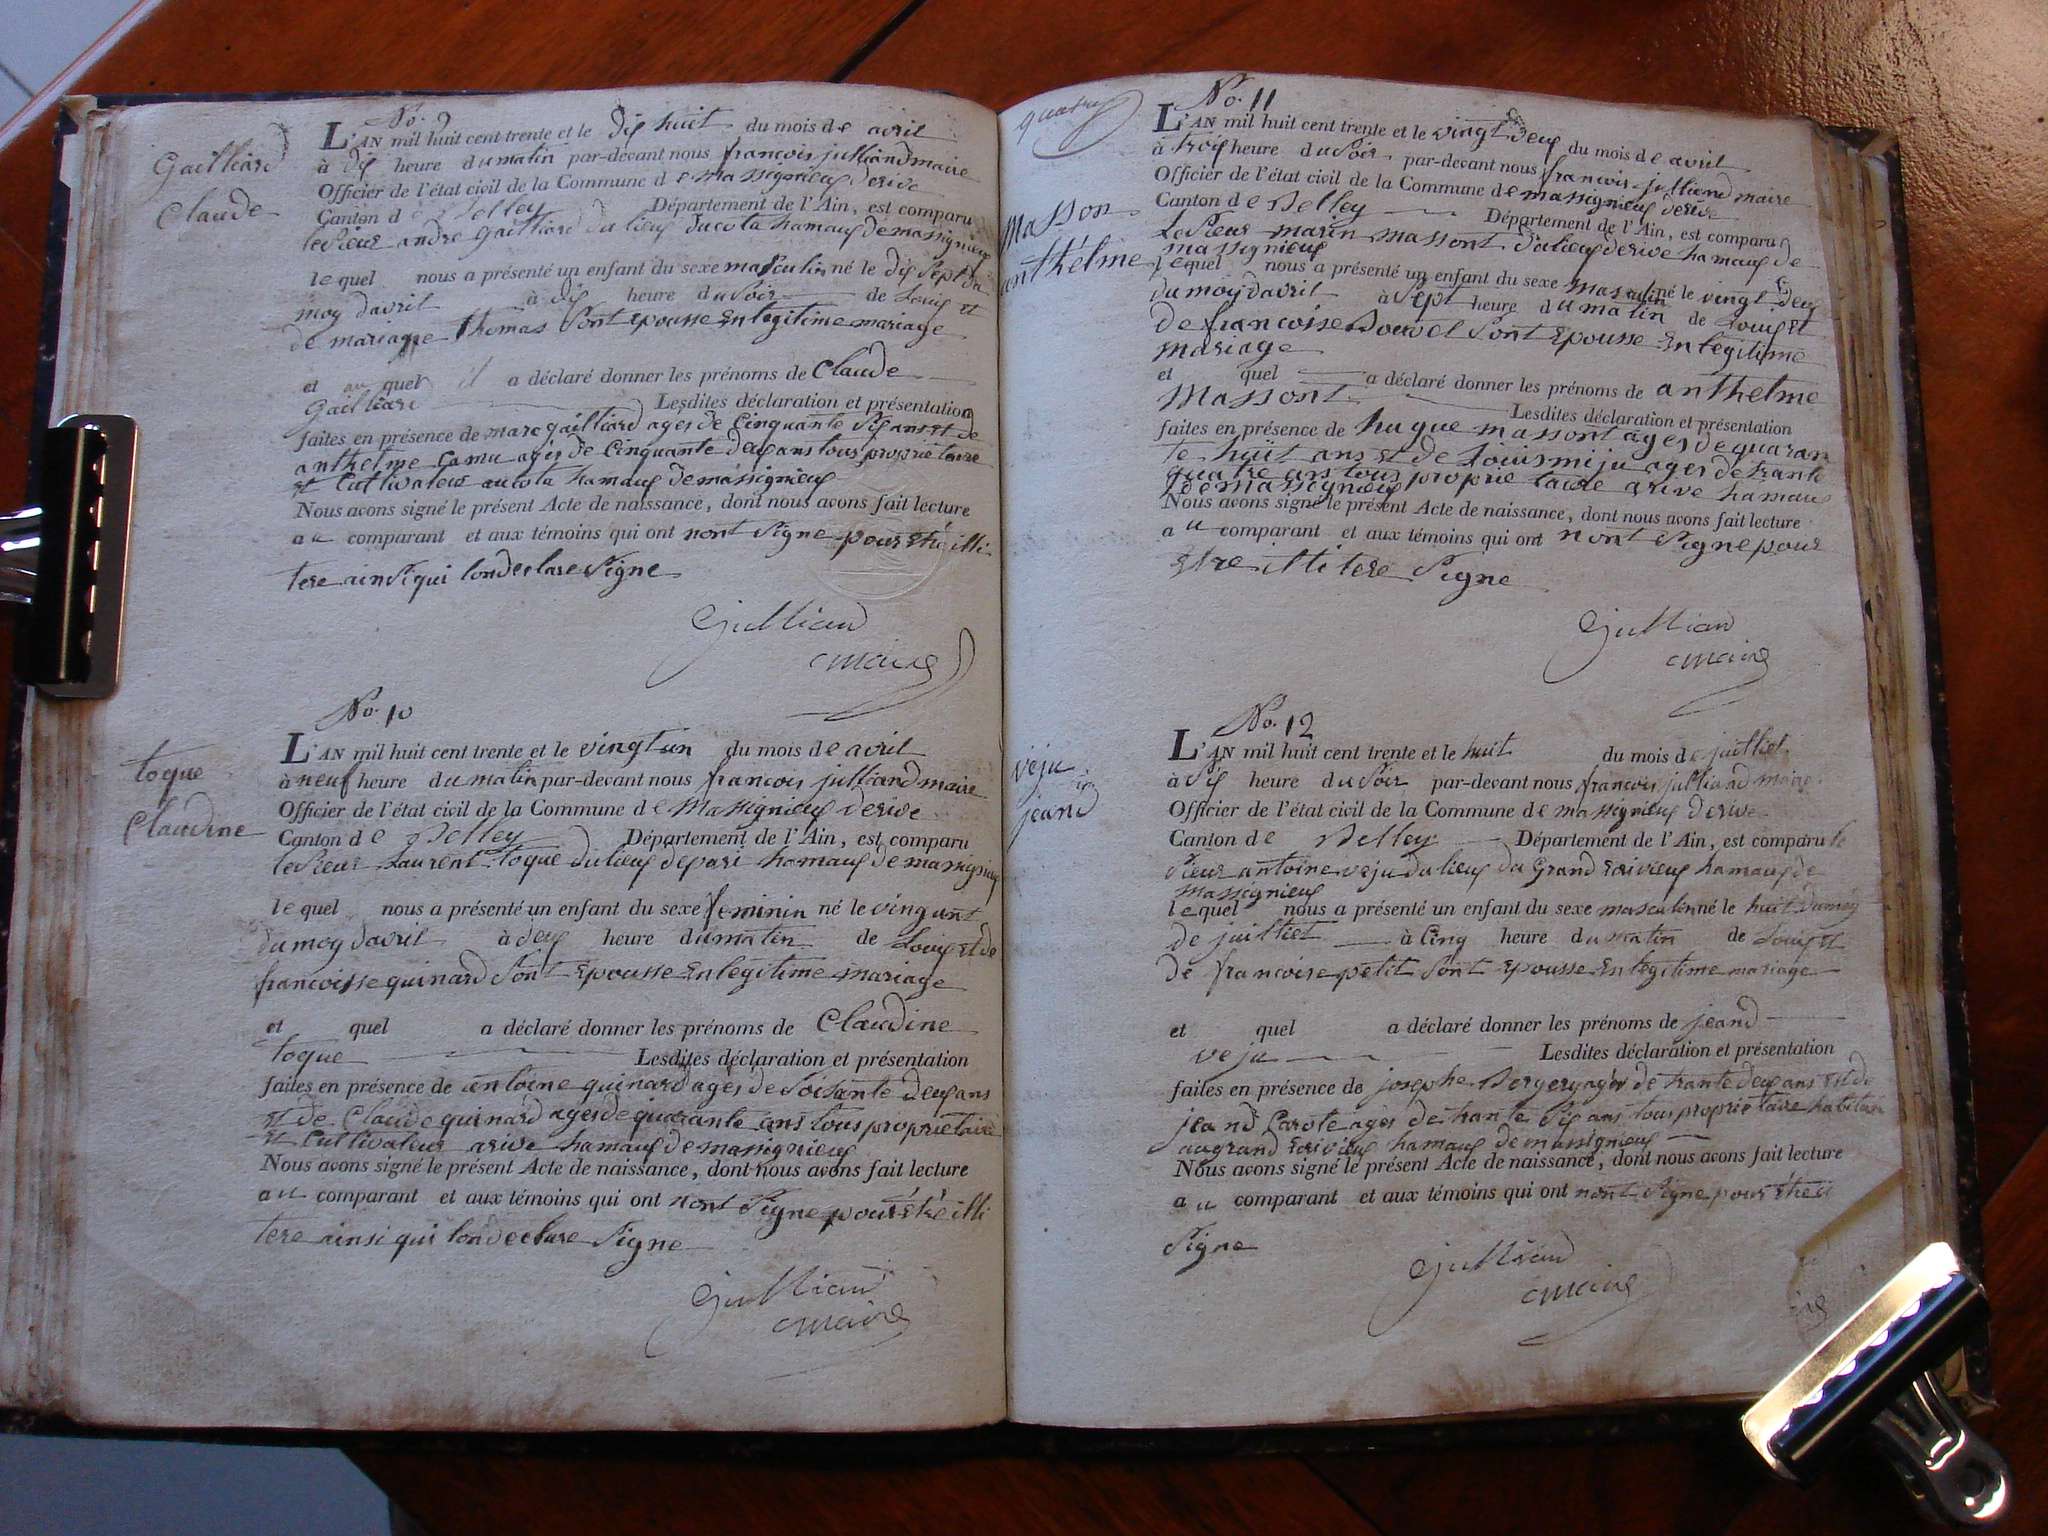 No. 9
Gailliard
Claude
L'AN mil huit cent trente et le dix huit du mois de avril
à dix heure du matin par-devant nous françois julliand maire
Officier de l'état civil de la Commune de massignieux derive
Canton de Belley Département de l'Ain, est comparu
le sieur andre Gailliard du lieux ducota hamaux de massignieux
lequel nous a présenté un enfant du sexe masculin né le dix sept du
moy davril à dix heure du soir de Louis et
de mariagre thomas sont epousse en legitime mariage
et au quel il a déclaré donner les prénoms de Claude
Gailliard Lesdites déclaration et présentation
faites en présence de marc gailliard ages de cinquante six ans et de
anthelme camu ages de cinquante deux ans tous proprietaire
et cultivateur au cota hamaux de massignieux
Nous avons signé le présent Acte de naissance, dont nous avons fait lecture
au comparant et aux témoins qui ont nont signe pour etre illi
tere ainsi qui lon declare signe
julliand
maire
No. 10
toque
Claudine
L'AN mil huit cent trente et le vingt un du mois de avril
à neuf heure du matin par-devant nous françois julliand maire
Officier de l'état civil de la Commune de Massignieux derive
Canton de Belley Département de l'Ain, est comparu
le sieur Laurent toque du lieux de pari hamaux de massignieux
lequel nous a présenté un enfant du sexe feminin né le vingunt
du moy davril à deux heure du matin de Louis et de
francoisse quinard sont epousse en legitime mariage
et quel a déclaré donner les prénoms de Claudine
toque Lesdites déclaration et présentation
faites en présence de antoine quinard ages de soisante deux ans
et de Claude quinard ages de quarante ans tous proprietaire
et cultivateur arive hamaux de massignieux
Nous avons signé le présent Acte de naissance, dont nous avons fait lecture
au comparant et aux témoins qui ont nont signe pour etre illi
tere ainsi qui lon declare signe
julliand
maire
quatre
No. 11
Masson
anthelme
L'AN mil huit cent trente et le vingt deux du mois de avril
à trois heure du soir par-devant nous françois julliand maire
Officier de l'état civil de la Commune de massignieux derive
Canton de Belley Département de l'Ain, est comparu
le sieur marin massont du lieux derive hamaux de
massignieux
lequel nous a présenté un enfant du sexe masculin né le vingt deux
du moy davril à sept heure du matin de Louis et
de francoise Bouvel sont epousse en legitime
mariage
et quel a déclaré donner les prénoms de anthelme
Massont Lesdites déclaration et présentation
faites en présence de hugue massont ages de quaran
te huit ans et de Louis miju ages de trante
quatre ans tous proprietaire arive hamaux
de massignieux
Nous avons signé le présent Acte de naissance, dont nous avons fait lecture
au comparant et aux témoins qui ont nont signe pour
etre illitere signe
julliand
maire
No. 12
veju
jeand
L'AN mil huit cent trente et le huit du mois de juilliet
à six heure du soir par-devant nous francois julliand maire
Officier de l'état civil de la Commune de massignieux derive
Canton de Belley Département de l'Ain, est comparu le
sieur antoine veju du lieux du Grand erivieux hamaux de
massignieux
lequel nous a présenté un enfant du sexe masculin né le huit du moy
de juilliet à cinq heure du matin de Louis et
de francoise petit sont epousse en legitime mariage
et quel a déclaré donner les prénoms de jeand
veju Lesdites déclaration et présentation
faites en présence de josephe Bergery ages de trante deux ans et de
jeand Carote ages de trante six ans tous proprietaire habitan
au grand erivieux hamaux de massignieux
Nous avons signé le présent Acte de naissance, dont nous avons fait lecture
au comparant et aux témoins qui ont nont signe pour etre il
signe
julliand
maire